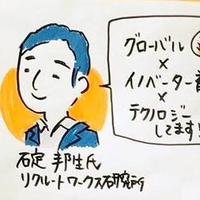 グローバル
×
イノベーター
×
テクノロジー
してます!
石定 邦生氏
リクルートワークス研究所